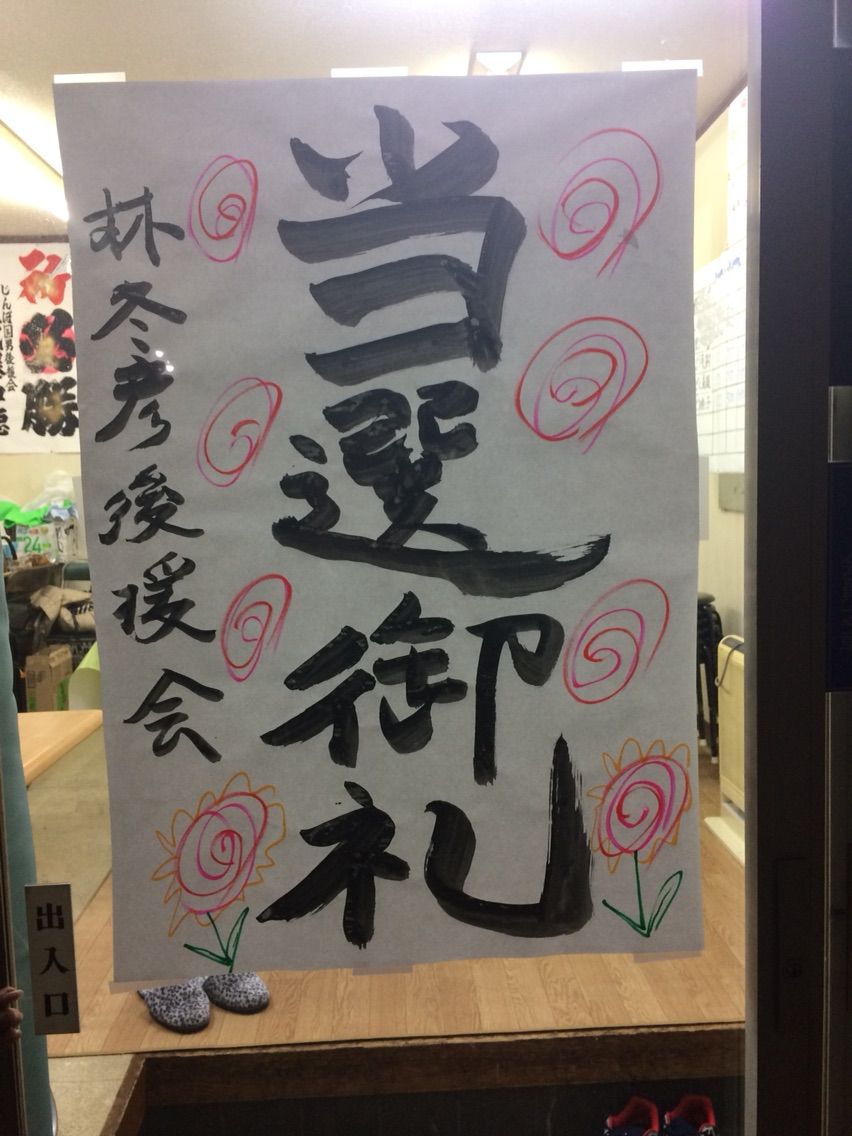 当選御礼
林冬彦後援会
祈必勝
じんぼ国男後援会
出入口
24